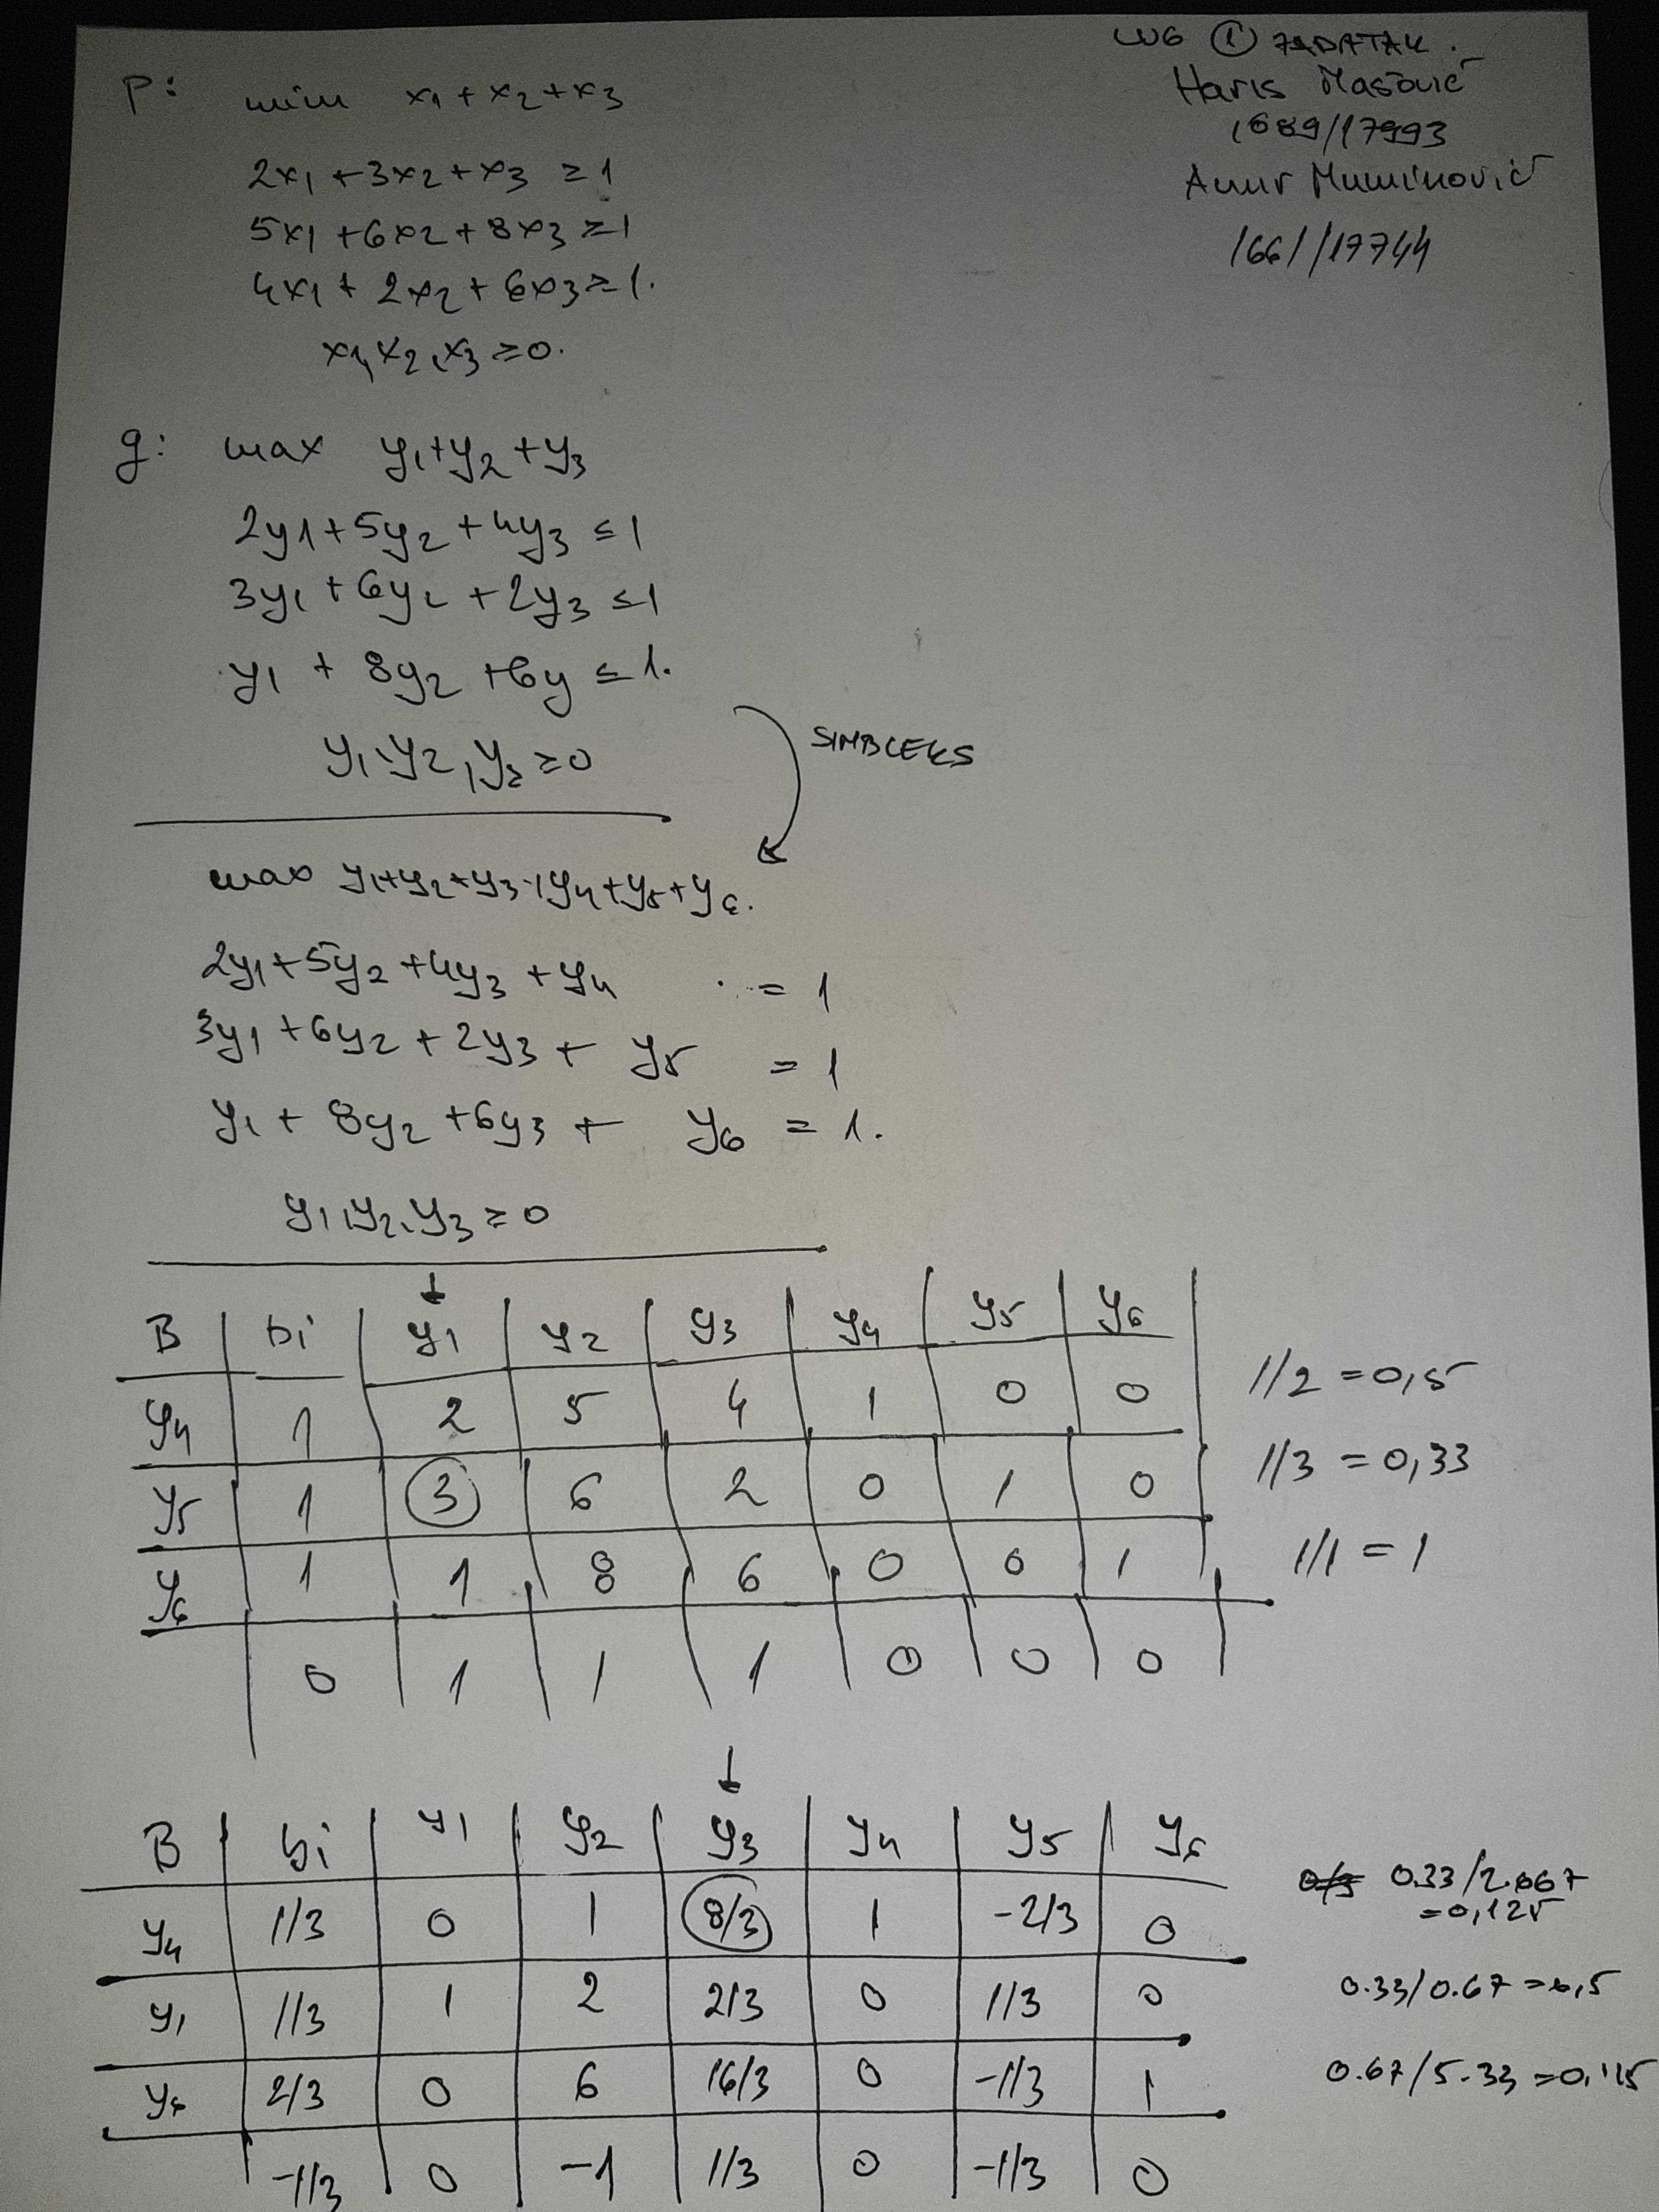 LV6 ① ZADATAK.
Haris Mašović
1689/17993
Amir Muminović
1661/17744
P: min x1 + x2 + x3
2x1 + 3x2 + x3 ≥ 1
5x1 + 6x2 + 8x3 ≥ 1
4x1 + 2x2 + 6x3 ≥ 1.
x1, x2, x3 ≥ 0.
g: max y1 + y2 + y3
2y1 + 5y2 + 4y3 ≤ 1
3y1 + 6y2 + 2y3 ≤ 1
y1 + 8y2 + 6y ≤ 1.
y1, y2, y3 ≥ 0
SIMPLEKS
max y1 + y2 + y3 + y4 + y5 + y6.
2y1 + 5y2 + 4y3 + y4 = 1
3y1 + 6y2 + 2y3 + y5 = 1
y1 + 8y2 + 6y3 + y6 = 1.
y1, y2, y3 ≥ 0
B bi y1 y2 y3 y4 y5 y6
y4 1 2 5 4 1 0 0 1/2 = 0,5
y5 1 3 6 2 0 1 0 1/3 = 0,33
y6 1 1 8 6 0 0 1 1/1 = 1
0 1 1 1 0 0 0
B bi y1 y2 y3 y4 y5 y6
y4 1/3 0 1 8/3 1 -2/3 0 0.33/2.667
= 0,125
y1 1/3 1 2 2/3 0 1/3 0 0.33/0.67 = 0,5
y6 2/3 0 6 16/3 0 -1/3 1 0.67/5.33 = 0,125
-1/3 0 -1 1/3 0 -1/3 0